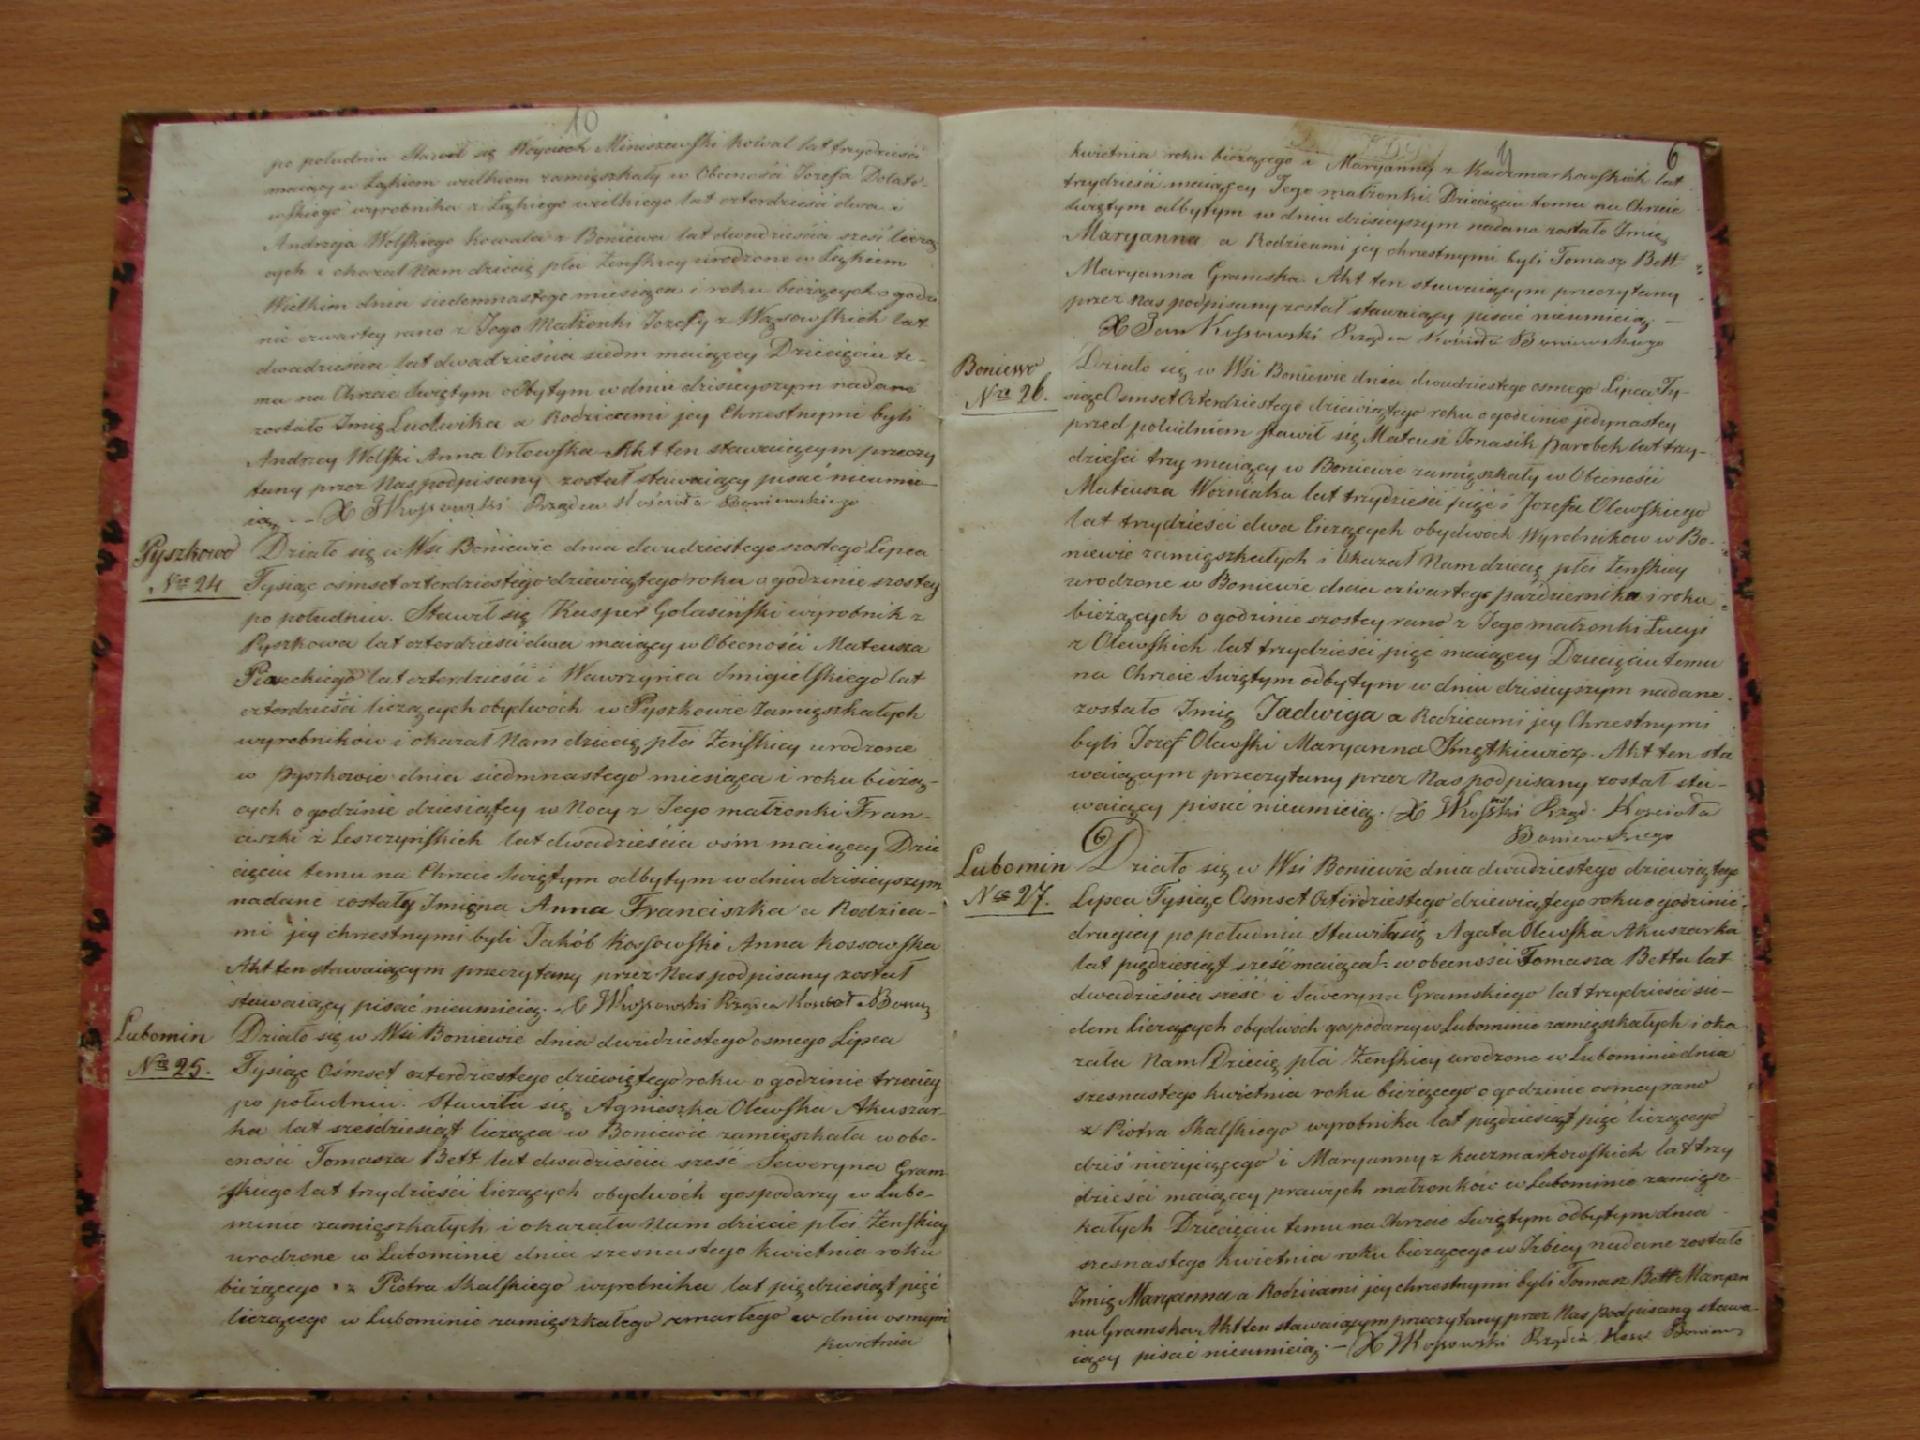 10
po południu Stawił się Woyciech Miniszewski Kowal lat trzydzieści
maiący w Łąkiem wielkiem zamięszkały w Obecności Jozefa Dolato-
wskiego wyrobnika z Łąkiego wielkiego lat czterdzieści dwa i
Andrzeja Wolskiego Kowala z Boniewa lat dwadzieścia sześć licząc
cych i okazał Nam dziecię płci Żenskiey urodzone w Łąkiem
Wielkim dnia siedemnastego miesiąca i roku bieżących o godzi
nie czwartey rano z Jego Małżonki Jozefy z Wąsowskich lat
dwadzieścia lat dwadzieścia siedm maiącey Dziecięciu te-
mu na Chrzcie Swiętym odbytym w dniu dzisieyszym nadane
zostało Imię Ludwika a Rodzicami jey Chrzestnymi byli
Andrzey Wolski Anna Orłowska Akt ten stawaiącym przeczy
tany przez Nas podpisany został stawaiący pisać nieumie
iąc. - X Kossowski Rządca Kościoła Boniewskiego
Pyszkowo
Nro 24
Działo się w Wsi Boniewie dnia dwudziestego szostego Lipca
Tysiąc ośmset czterdziestego dziewiątego roku o godzinie szostey
po południu. Stawił się Kasper Golasiński wyrobnik z
Pyszkowa lat czterdzieści dwa maiący w Obecności Mateusza
Piaseckiego lat czterdzieści i Wawrzyńca Smigielskiego lat
czterdzieści liczących obydwóch w Pyszkowie Zamięszkałych
wyrobników i okazał Nam dziecię płci Żenskiey urodzone
w Pyszkowie dnia siedmnastego miesiąca i roku bieżą-
cych o godzinie dziesiątey w Nocy z Jego małżonki Fran-
ciszki z Leszczyńskich lat dwadzieścia ośm maiącey Dzie
cięciu temu na Chrzcie Swiętym odbytym w dniu dzisieyszym
nadane zostały Imiona Anna Franciszka a Rodzica-
mi jey chrzestnymi byli Jakób Kossowski Anna Kossowska
Akt ten stawaiącym przeczytany przez Nas podpisany został
stawaiący pisać nieumieiąc. - X Kossowski Rządca Kościoła Boniew
Lubomin
Nro 25.
Działo się w Wsi Boniewie dnia dwudziestego osmego Lipca
Tysiąc Ośmset czterdziestego dziewiętego roku o godzinie trzeciey
po południu. Stawiła się Agnieszka Olewska Akuszar-
ka lat sześdziesiąt licząca w Boniewie zamięszkała w obe-
cności Tomasza Bett lat dwadzieścia sześć Seweryna Gram
skiego lat trzydzieści liczących obydwóch gospodarzy w Lubo-
minie zamięszkałych i okazała Nam dziecie płci Żenskiey
urodzone w Lubominie dnia szesnastego kwietnia roku
bieżącego z Piotra Skalskiego wyrobnika lat pięćdziesiąt pięć
liczącego w Lubominie zamięszkałego zmarłego w dniu osmym
kwietnia
6
kwietnia roku bieżącego i Maryanny z Kaczmarkowskich lat
trzydzieści maiącey Jego małżonki Dziecięciu temu na Chrzcie
Swiętym odbytym w dniu dzisieyszym nadane zostało Imię
Maryanna a Rodzicami jey chrzestnymi byli Tomasz Bett
Maryanna Gramska. Akt ten stawaiącym przeczytany
przez Nas podpisany został stawaiący pisać nieumieiąc -
X Kossowski Rządca Kościoła Boniewskiego
Boniewo
Nro 26.
Działo się w Wsi Boniewie dnia dwudziestego osmego Lipca Ty-
siąc Osmset Czterdziestego dziewiątego roku o godzinie jedynastey
przed południem stawił się Mateusz Jonasik Parobek lat trzy-
dzieści trzy maiący w Boniewie zamięszkały w Obecności
Mateusza Wozniaka lat trzydzieści pięć i Jozefa Olewskiego
lat trzydzieści dwa liczących obydwóch Wyrobnikow w Bo-
niewie zamięszkałych i Okazał Nam dziecię płci Żenskiey
urodzone w Boniewie dnia czwartego października i roku
bieżących o godzinie szostey rano z Jego małżonki Łucyi
z Olewskich lat trzydzieści pięć maiącey Dziecięciu temu
na Chrzcie Swiętym odbytym w dniu dzisieyszym nadane
zostało Imię Jadwiga a Rodzicami jey Chrzestnymi
byli Jozef Olewski Maryanna Kmętkiewicz. Akt ten sta
waiącym przeczytany przez Nas podpisany został sta-
waiący pisać nieumieiąc. X Kossowski Rząd: Kościoła
Boniewskiego
6
Lubomin
Nro 27.
Działo się w Wsi Boniewie dnia dwudziestego dziewiątego
Lipca Tysiąc Osmset Czterdziestego dziewiątego roku o godzinie
drugiey po południu stawiła się Agata Olewska Akuszarka
lat pięćdziesiąt sześć maiąca - w obecności Tomasza Betta lat
dwadzieścia sześć i Seweryna Gramskiego lat trzydzieści sie-
dem liczących obydwóch gospodarzy w Lubominie zamięszkałych i oka
zała Nam Dziecię płci Żenskiey urodzone w Lubominie dnia
szesnastego kwietnia roku bieżącego o godzinie osmey rano
z Piotra Skalskiego wyrobnika lat pięćdziesiąt pięć liczącego
dziś nieżyiącego i Maryanny z Kaczmarkowskich lat trzy
dzieści maiącey prawych małżonków w Lubominie zamięsz-
kałych Dziecięciu temu na Chrzcie Swiętym odbytym dnia
szesnastego kwietnia roku bieżącego w Izbicy nadane zostało
Imię Maryanna a Rodzicami jey chrzestnymi byli Tomasz Bett Maryan
na Gramska Akt ten stawaiącym przeczytany przez Nas podpisany stawa-
iący pisać nieumieiąc. - X Kossowski Rządca Kość Boniew